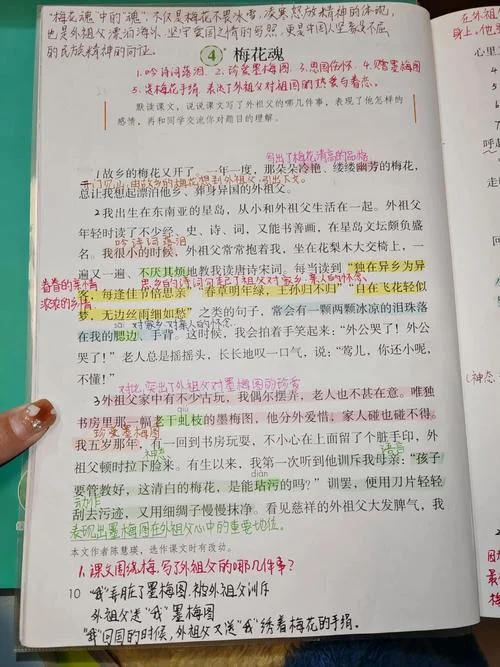 "梅花魂"中的"魂",不仅是梅花不畏冰雪,凌寒怒放精神的体现,
也是外祖父漂泊海外,坚守爱国之情的写照,更是中国人坚贞不屈
的民族精神的向征。
4 梅花魂
1.吟诗词落泪 2.珍爱墨梅图 3.思国伤怀 4.赠墨梅图
5.送梅花手绢 表达了外祖父对祖国的热爱与眷恋。
默读课文,说说课文写了外祖父的哪几件事,表现了他怎样的
感情,再和同学交流你对题目的理解。
写出了梅花清高的品格
1故乡的梅花又开了。一年一度,那朵朵冷艳、缕缕幽芳的梅花,
开门见山,由故乡的梅花想到外祖父,引出下文。
总让我想起漂泊他乡、葬身异国的外祖父。
2我出生在东南亚的星岛,从小和外祖父生活在一起。外祖父
年轻时读了不少经、史、诗、词,又能书善画,在星岛文坛颇负盛
吟诗词落泪
名。我很小的时候,外祖父常常抱着我,坐在花梨木大交椅上,一
遍又一遍、不厌其烦地教我读唐诗宋词。每当读到"独在异乡为异
眷眷的亲情
浓浓的乡情
思乡的诗词勾起了外祖父对家乡、亲人的怀念
客,每逢佳节倍思亲""春草明年绿,王孙归不归""自在飞花轻似
梦,无边丝雨细如愁"之类的句子,常会有一颗两颗冰凉的泪珠落
sāi 对家乡对亲人的怀念
在我的腮边、手背。这时候,我会拍着手笑起来:"外公哭了!外公
哭了!"老人总是摇摇头,长长地叹一口气,说:"莺儿,你还小呢,
不懂!"
对比,突出了外祖父对墨梅图的珍爱
3外祖父家中有不少古玩,我偶尔摆弄,老人也不甚在意。唯独
qiú
书房里那一幅老干虬枝的墨梅图,他分外爱惜,家人碰也碰不得。
珍爱墨梅图
我五岁那年,有一回到书房玩耍,不小心在上面留了个脏手印,外
神态
语言
祖父顿时拉下脸来。有生以来,我第一次听到他训斥我母亲:"孩子
diàn
要管教好,这清白的梅花,是能玷污的吗?"训罢,便用刀片轻轻
动作
刮去污迹,又用细绸子慢慢抹净。看见慈祥的外祖父大发脾气,我
表现出墨梅图在外祖父心中的重要地位。
本文作者陈慧瑛,选作课文时有改动。
1.课文围绕梅,写了外祖父的哪几件事?
10 "我"弄脏了墨梅图,被外祖父训斥
外祖父送"我"墨梅图
"我"回国的时候,外祖父又送"我"绣着梅花的手绢。